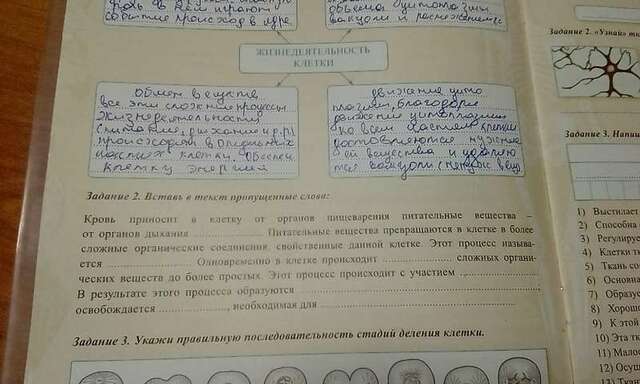 объема цитоплазмы
вакуоли и
ЖИЗНЕДЕЯТЕЛЬНОСТЬ
КЛЕТКИ
Обмен веществ,
все эти сложные процессы
жизнедеятельности
(питание, дыхание и др.)
происходят в отдельных
частях клетки.
клетку энергией
движение цито
плазмы, благодаря
движению цитоплазмы
ко всем частям клетки
доставляются нужные
ей вещества и удаляю
тся
Задание 2. Вставь в текст пропущенные слова:
Кровь приносит в клетку от органов пищеварения питательные вещества –
от органов дыхания ............. Питательные вещества превращаются в клетке в более
сложные органические соединения, свойственные данной клетке. Этот процесс называ-
ется ............. Одновременно в клетке происходит ............. сложных органи-
ческих веществ до более простых. Этот процесс происходит с участием .............
В результате этого процесса образуются .............
освобождается ............., необходимая для .............
Задание 3. Укажи правильную последовательность стадий деления клетки.
Задание 2. «Узнай» тк
Задание 3. Напиш
1) Выстилает
2) Способна
3) Регулируе
4) Клетки тк
5) Ткань со
6) Основна
7) Образус
8) Хорошо
9) К этой
10) Эта тк
11) Мала
12) Осущ